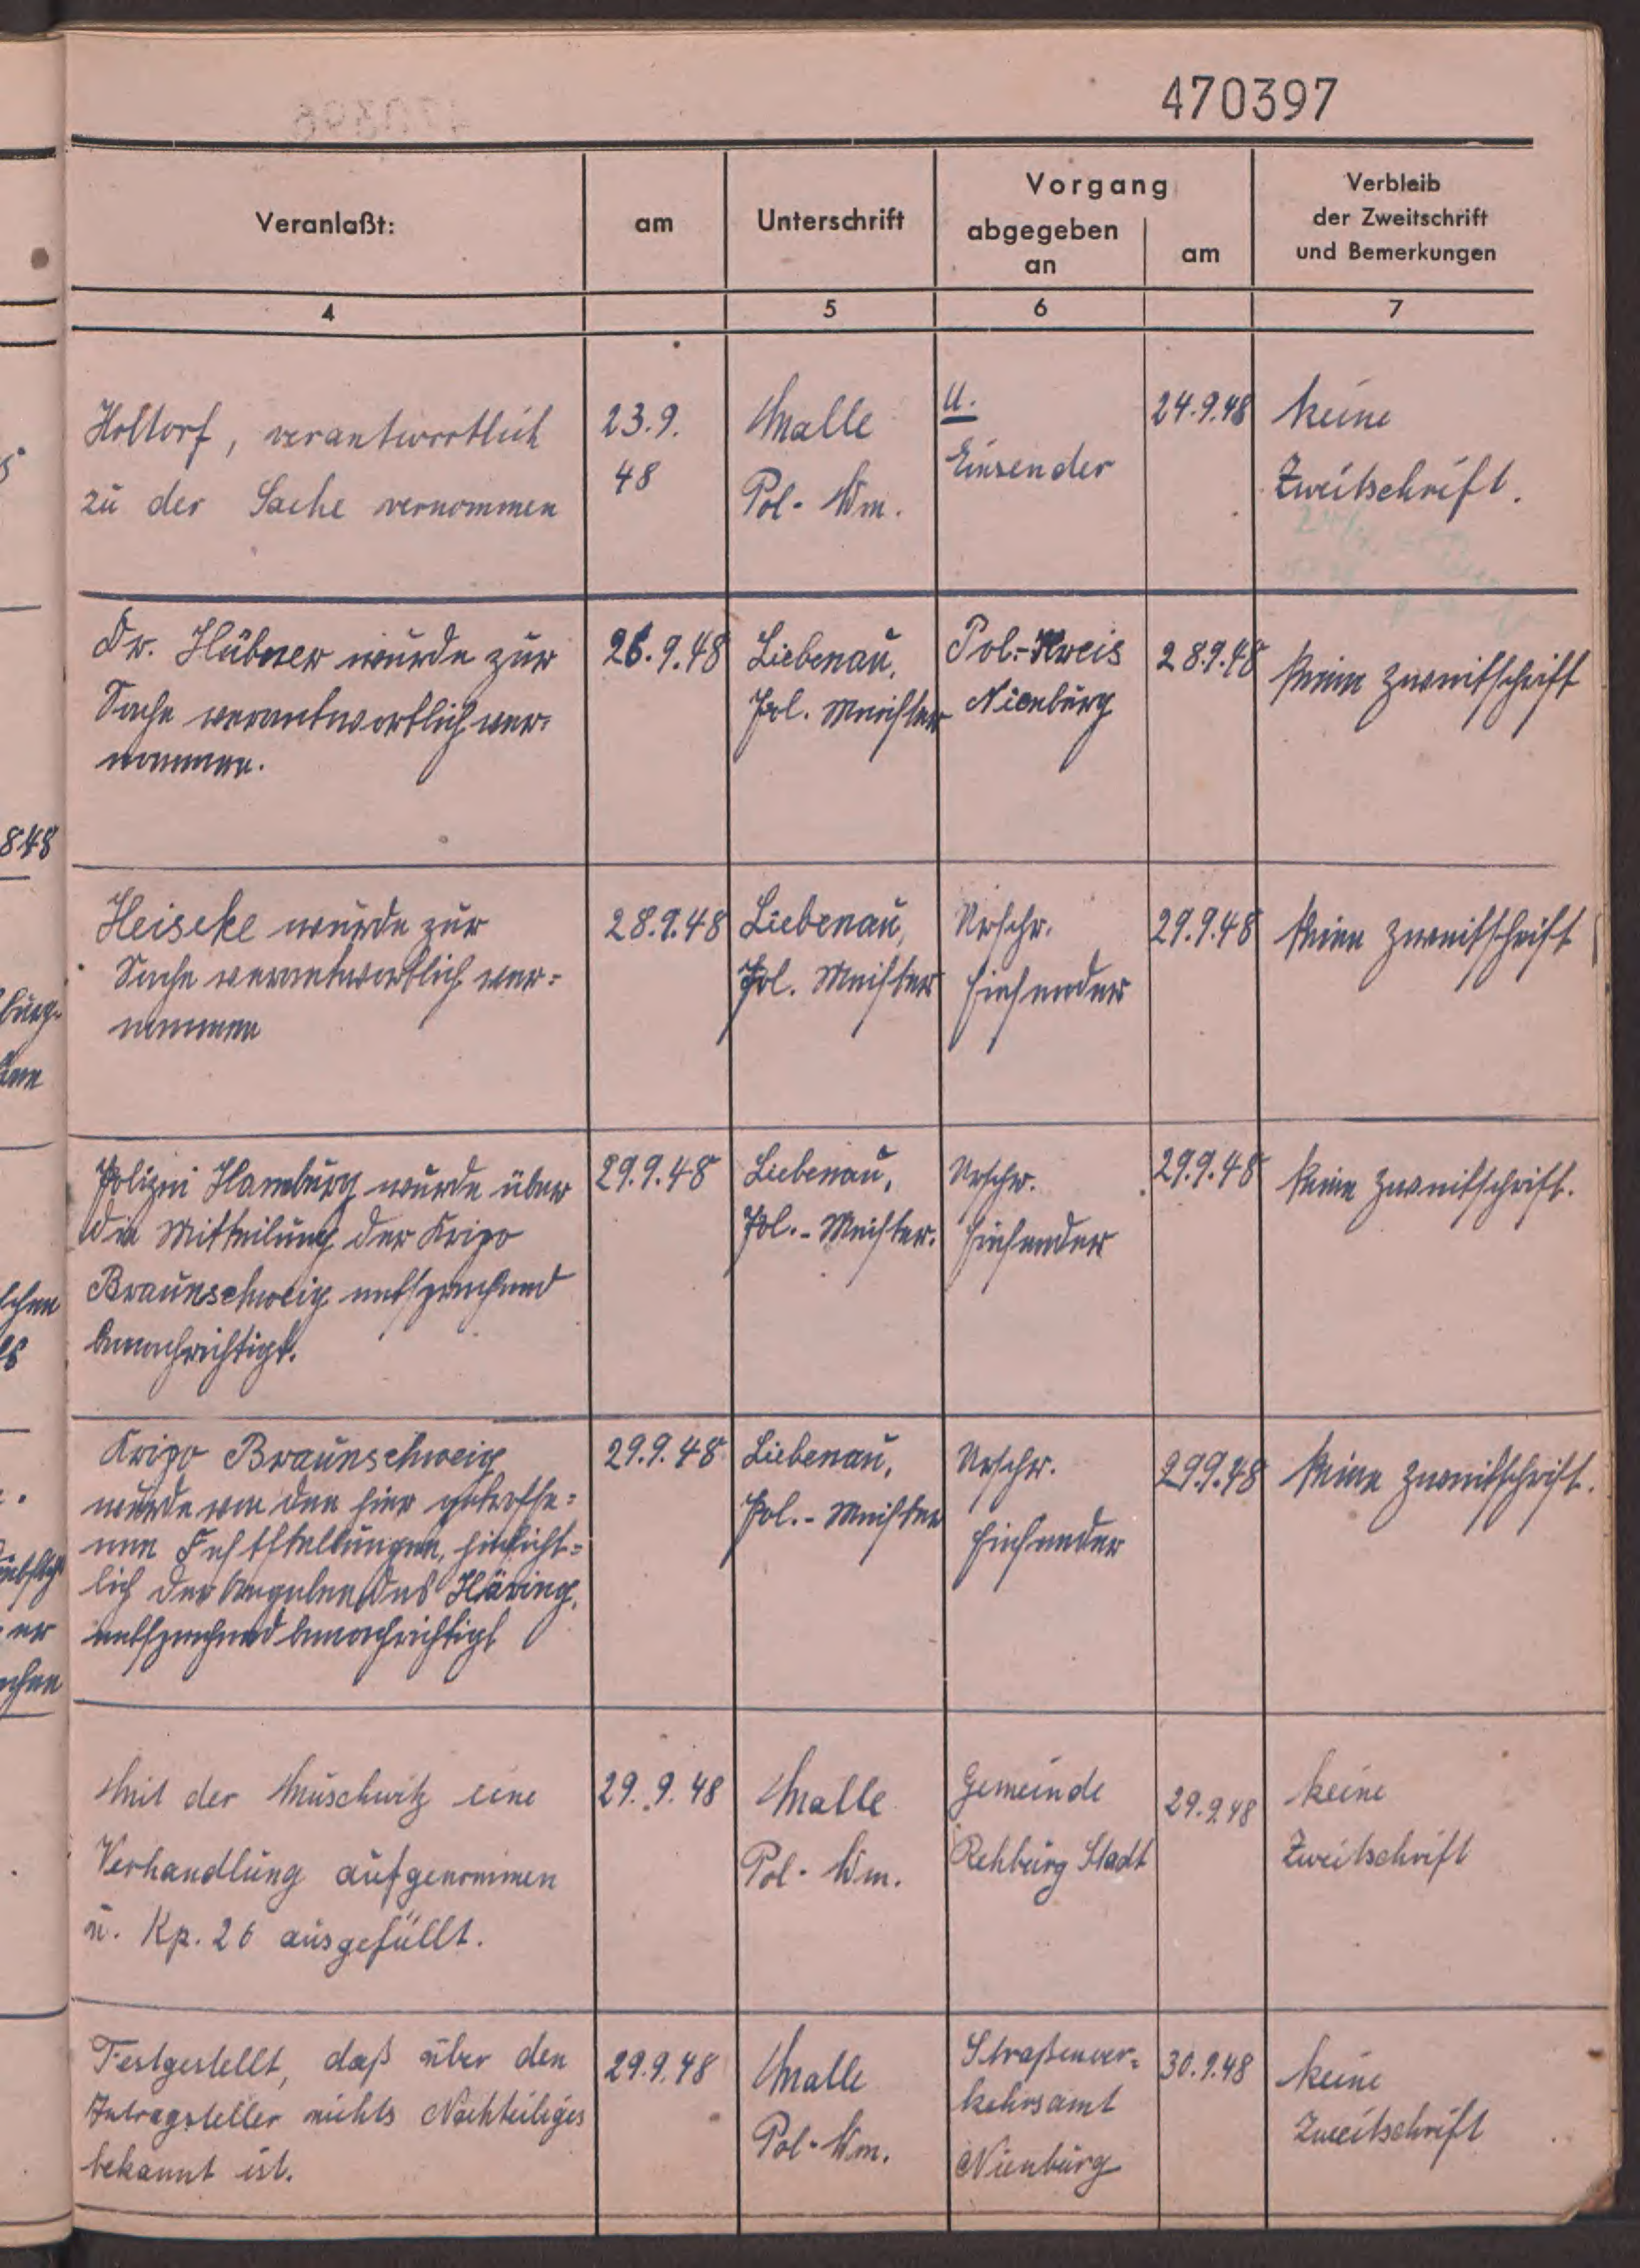 470397
Veranlaßt:
am
Unterschrift
Vorgang
abgegeben
an
am
Verbleib
der Zweitschrift
und Bemerkungen
4
5
6
7
Holtorf, verantwortlich
zu der Sache vernommen
23.9.
48
Malle
Pol-Wm.
U.
Einsender
24.9.48
keine
Zweitschrift.
Dr. Hübner wurde zur
Sache verantwortlich ver-
nommen.
26.9.48
Liebenau,
Pol. Meister
Pol.-Kreis
Nienburg
28.9.48
keine Zweitschrift
Heiseke wurde zur
Sache verantwortlich ver-
nommen
28.9.48
Liebenau,
Pol. Meister
Urschr.
Einsender
29.9.48
keine Zweitschrift
Polizei Hamburg wurde über
die Mitteilung der Kripo
Braunschweig entsprechend
benachrichtigt.
29.9.48
Liebenau,
Pol.-Meister.
Urschr.
Einsender
29.9.48
keine Zweitschrift.
Kripo Braunschweig
wurde von den hier getroffe-
nen Feststellungen, hinsicht-
lich der Angaben des Häring,
entsprechend benachrichtigt
29.9.48
Liebenau,
Pol.-Meister
Urschr.
Einsender
29.9.48
keine Zweitschrift.
Mit der Muschwitz eine
Verhandlung aufgenommen
u. Kp. 26 ausgefüllt.
29.9.48
Malle
Pol-Wm.
Gemeinde
Rehburg Stadt
29.9.48
keine
Zweitschrift
Festgestellt, daß über den
Antragsteller nichts Nachteiliges
bekannt ist.
29.9.48
Malle
Pol-Wm.
Straßenver-
kehrsamt
Nienburg
30.9.48
keine
Zweitschrift